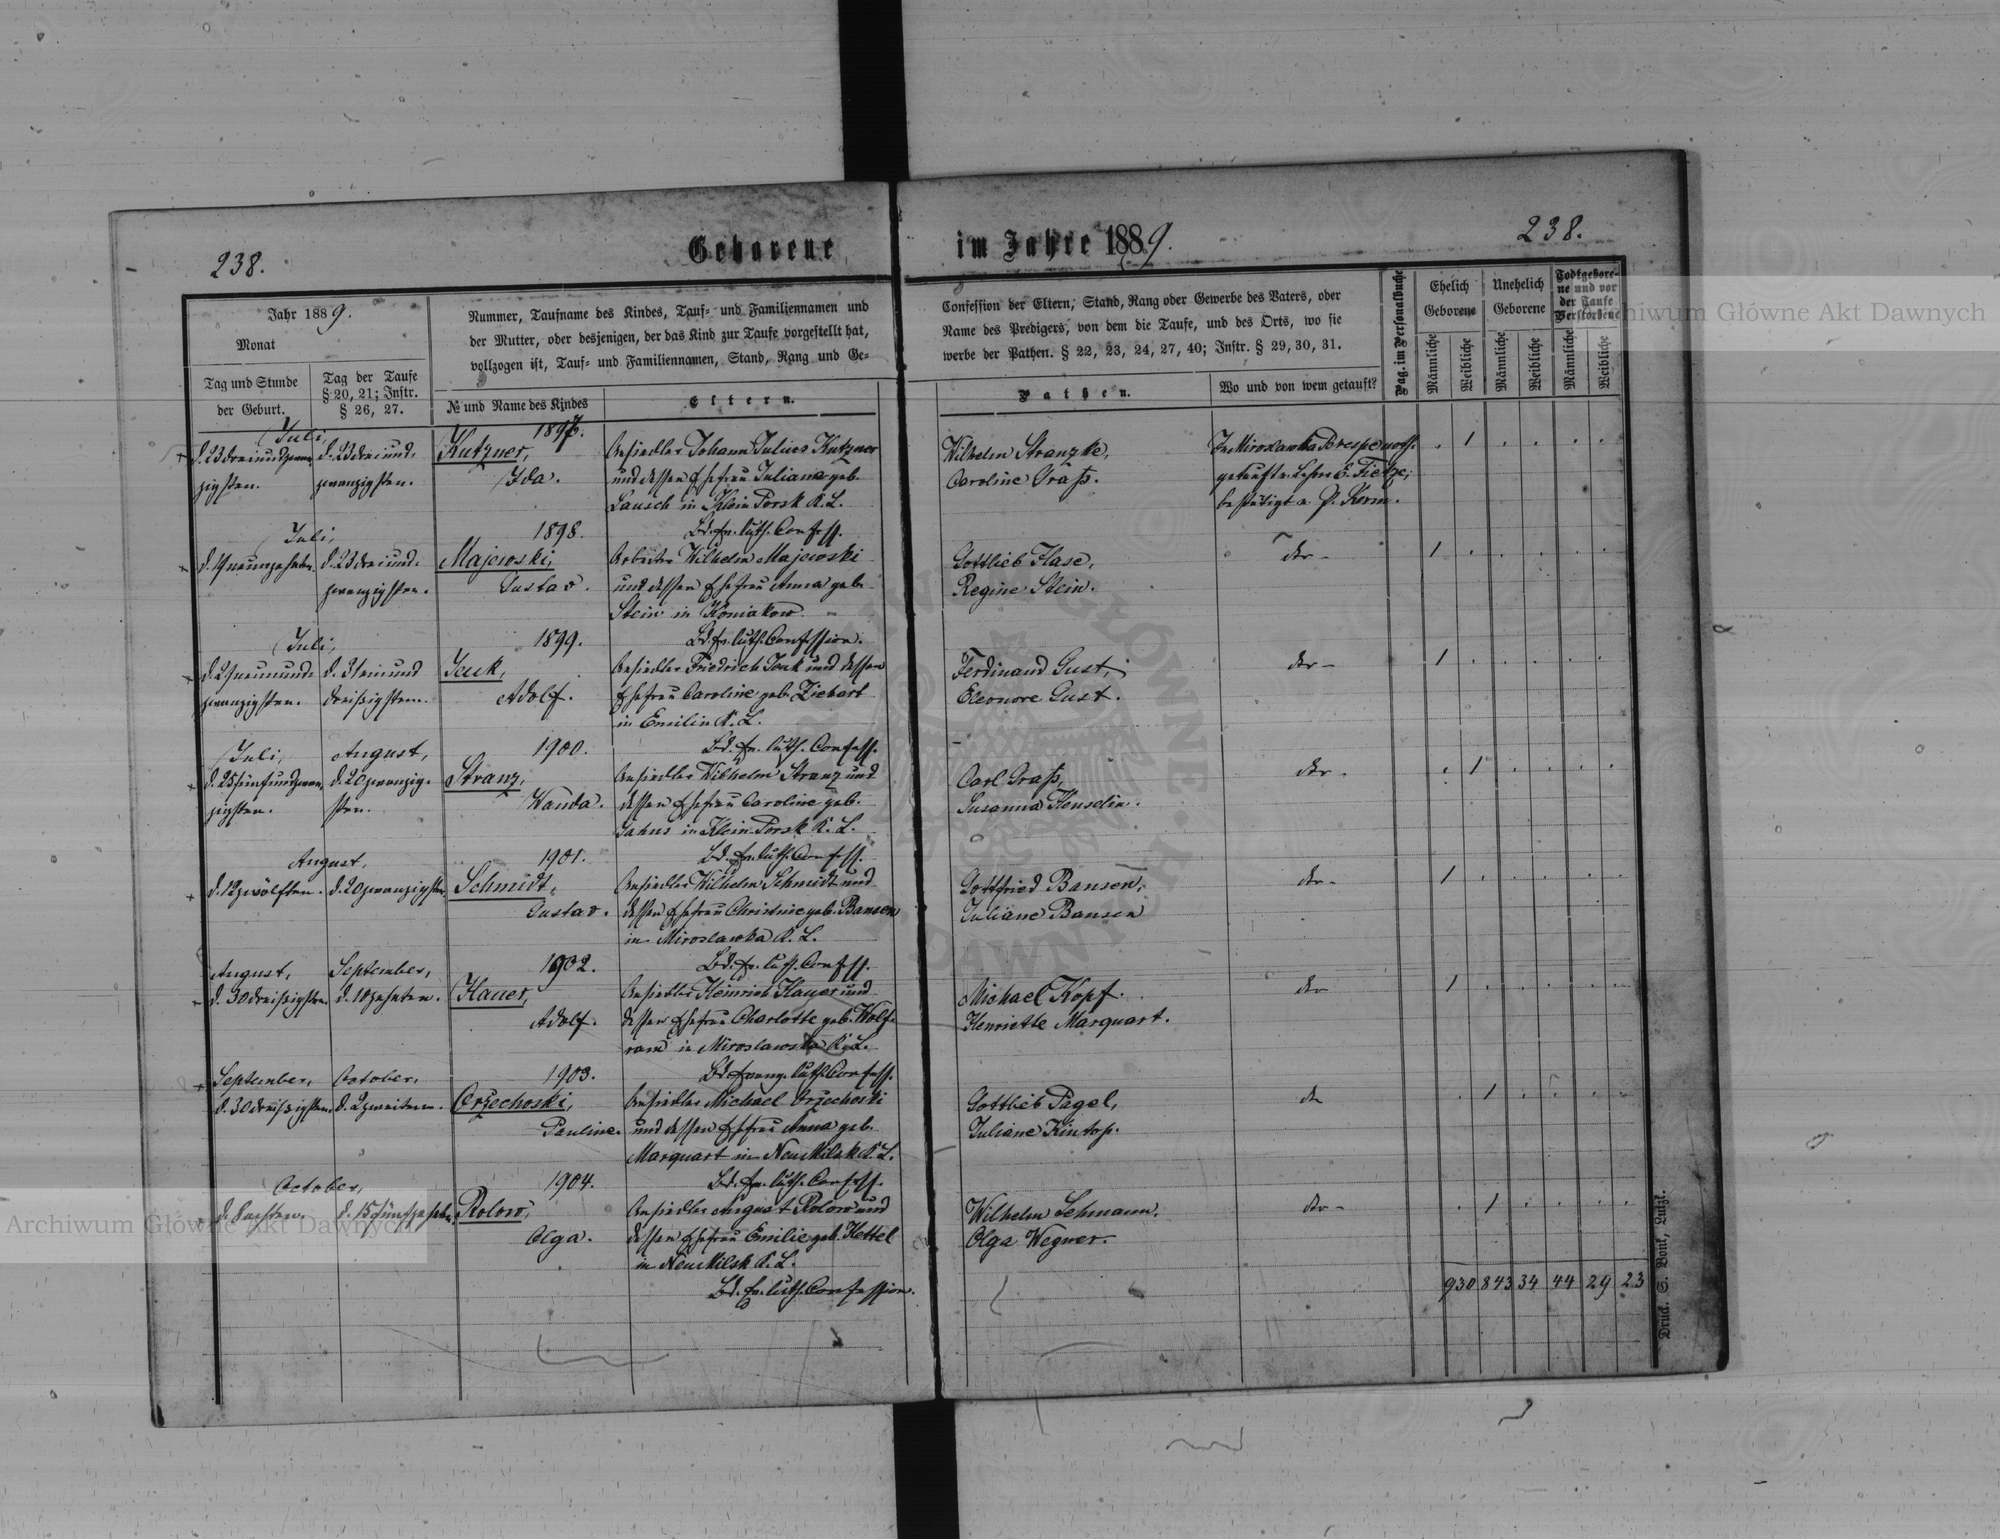 238.
Geborene
im Jahre 1889.
238.
Jahr 1889.
Monat
Tag und Stunde
der Geburt.
Tag der Taufe
§ 20, 21; Instr.
§ 26, 27.
Nummer, Taufname des Kindes, Tauf- und Familiennamen und
der Mutter, oder desjenigen, der das Kind zur Taufe vorgestellt hat,
vollzogen ist, Tauf- und Familiennamen, Stand, Rang und Ge-
№ und Name des Kindes
Eltern.
Confession der Eltern, Stand, Rang oder Gewerbe des Vaters, oder
Name des Predigers, von dem die Taufe, und des Orts, wo sie
werbe der Pathen. § 22, 23, 24, 27, 40; Instr. § 29, 30, 31.
Pathen.
Wo und von wem getauft?
Pag. im Personalbuche
Ehelich
Geborene
Unehelich
Geborene
Todtgebore-
ne und vor
der Taufe
Verstorbene
Männliche
Weibliche
Männliche
Weibliche
Männliche
Weibliche
Juli,
d. 23 dreiundzwan-
zigsten.
d. 23 dreiund-
zwanzigsten.
1897.
Kutzner,
Ida.
Ansiedler Johann Julius Kutzner
und dessen Ehefrau Juliana geb.
Lausch in Klein Torsk K. L.
Bd. Ev. luth. Confess.
Wilhelm Stranzke,
Caroline Graß.
In Miroslawka
getauft v. Lehrer E. Tietze;
bestätigt v. P. Kerm.
1
Juli,
d. 19 neunzehnten
d. 23 dreiund-
zwanzigsten.
1898.
Majewski,
Gustav.
Arbeiter Wilhelm Majewski
und dessen Ehefrau Anna geb.
Stein in Koniakow
Bd. Ev. luth. Confession.
Gottlieb Hase,
Regine Stein.
1
Juli,
d. 29 neunund-
zwanzigsten.
d. 31 einund
dreißigsten.
1899.
Jeuk,
Adolf.
Ansiedler Friedrich Jeuk und dessen
Ehefrau Caroline geb. Ziebart
in Emilin K. L.
Bd. Ev. luth. Confess.
Ferdinand Gust,
Eleonore Gust.
1
Juli,
d. 25 fünfundzwan-
zigsten.
August,
d. 20 zwanzig-
sten.
1900.
Stranz,
Wanda.
Ansiedler Wilhelm Stranz und
dessen Ehefrau Caroline geb.
Jahns in Klein Torsk K. L.
Bd. Ev. luth. Confess.
Carl Graß,
Susanna Henselin.
1
August,
d. 12 zwölften.
d. 20 zwanzigsten
1901.
Schmidt,
Gustav.
Ansiedler Wilhelm Schmidt und
dessen Ehefrau Christine geb. Bansen
in Miroslawka K. L.
Bd. Ev. luth. Confess.
Gottfried Bansen,
Juliane Bansen
1
August,
d. 30 dreißigsten.
September,
d. 10 zehnten.
1902.
Hauer,
Adolf.
Ansiedler Heinrich Hauer und
dessen Ehefrau Charlotte geb. Wolf-
ram in Miroslawka K. L.
Bd. Evang. luth. Confess.
Michael Kopf.
Henriette Marquart.
1
September,
d. 30 dreißigsten
October,
d. 2 zweiten.
1903.
Orzechoski,
Pauline.
Ansiedler Michael Orzechoski
und dessen Ehefrau Anna geb.
Marquart in Neu Milsk K. L.
Bd. Ev. luth. Confess.
Gottlieb Pagel,
Juliane Kintop.
1
October,
d. 8 achten.
d. 15 fünfzehnten
1904.
Rolow,
Olga.
Ansiedler August Rolow und
dessen Ehefrau Emilie geb. Hettel
in Neu Milsk K. L.
Bd. Ev. luth. Confession.
Wilhelm Lehmann.
Olga Wegner.
1
930 843 34 44 29 23
Druck. S. Bonk, Lutzk.
Archiwum Główne Akt Dawnych
Archiwum Główne Akt Dawnych